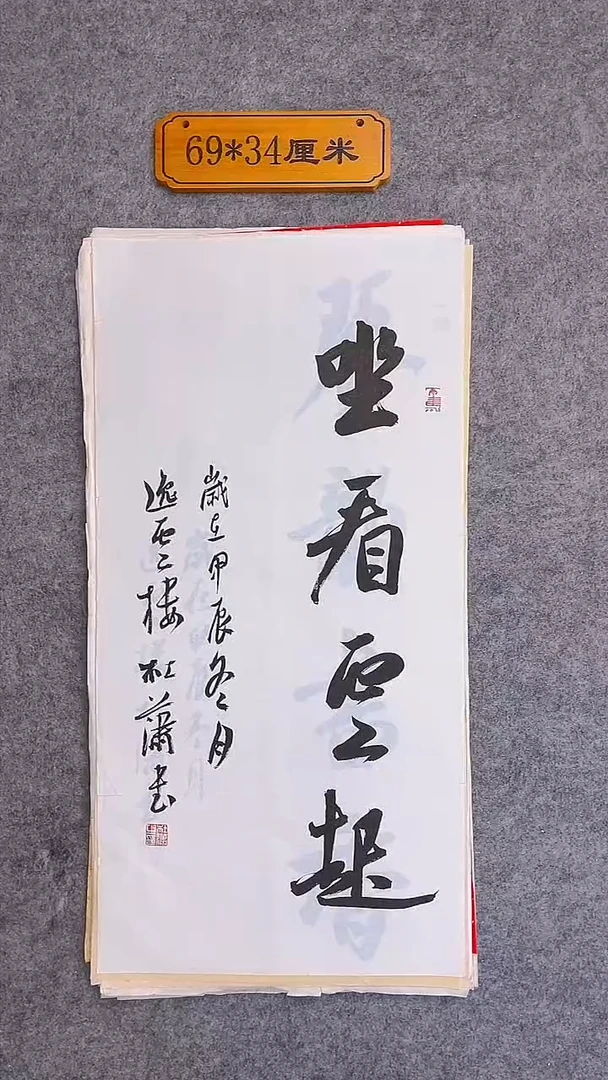 69*34厘米
坐看雲起
歲在甲辰冬月
逸雲樓杜蕭書